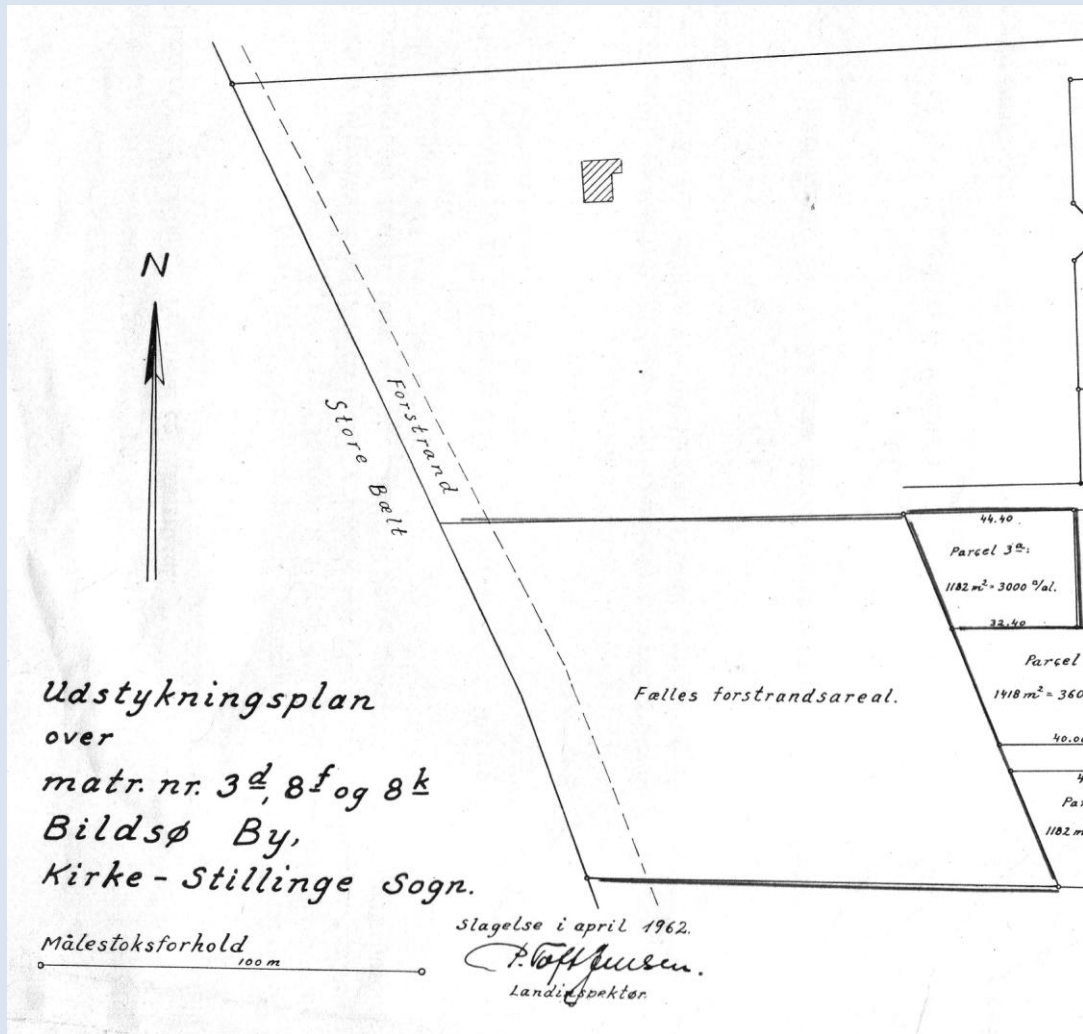 N
Forstrand
Store Bælt
44.40
Parcel 3a.
1182 m² = 3000 □/al.
32.40
Parcel
1418 m² = 360
40.00
4
Par
1182 m
Fælles forstrandsareal.
Udstykningsplan
over
matr. nr. 3d, 8f og 8k
Bildsø By,
Kirke-Stillinge Sogn.
Målestoksforhold
100 m
Slagelse i april 1962.
P. Toft Jensen.
Landinspektør.